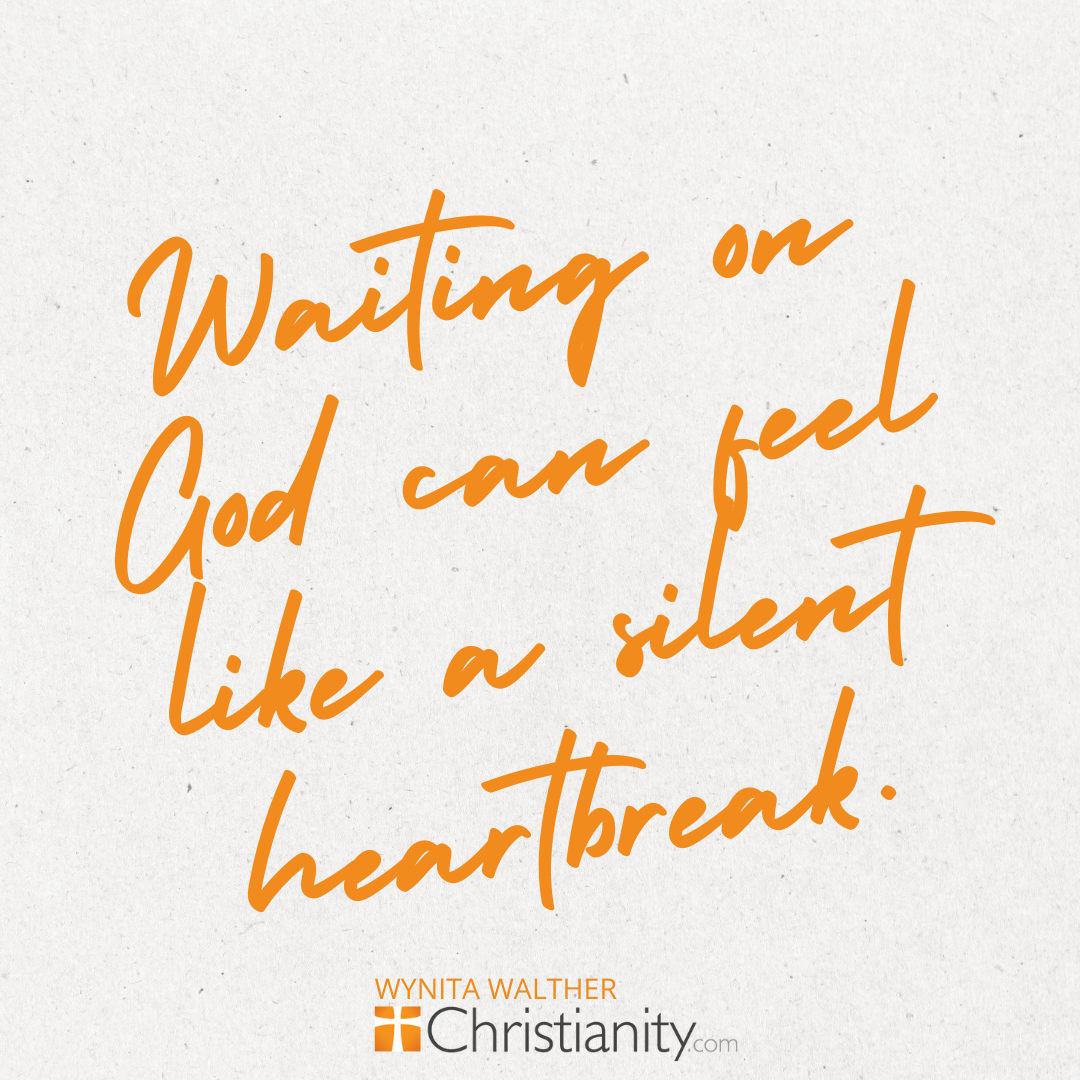 Waiting on
God can feel
like a silent
heartbreak.
WYNITA WALTHER
Christianity.com